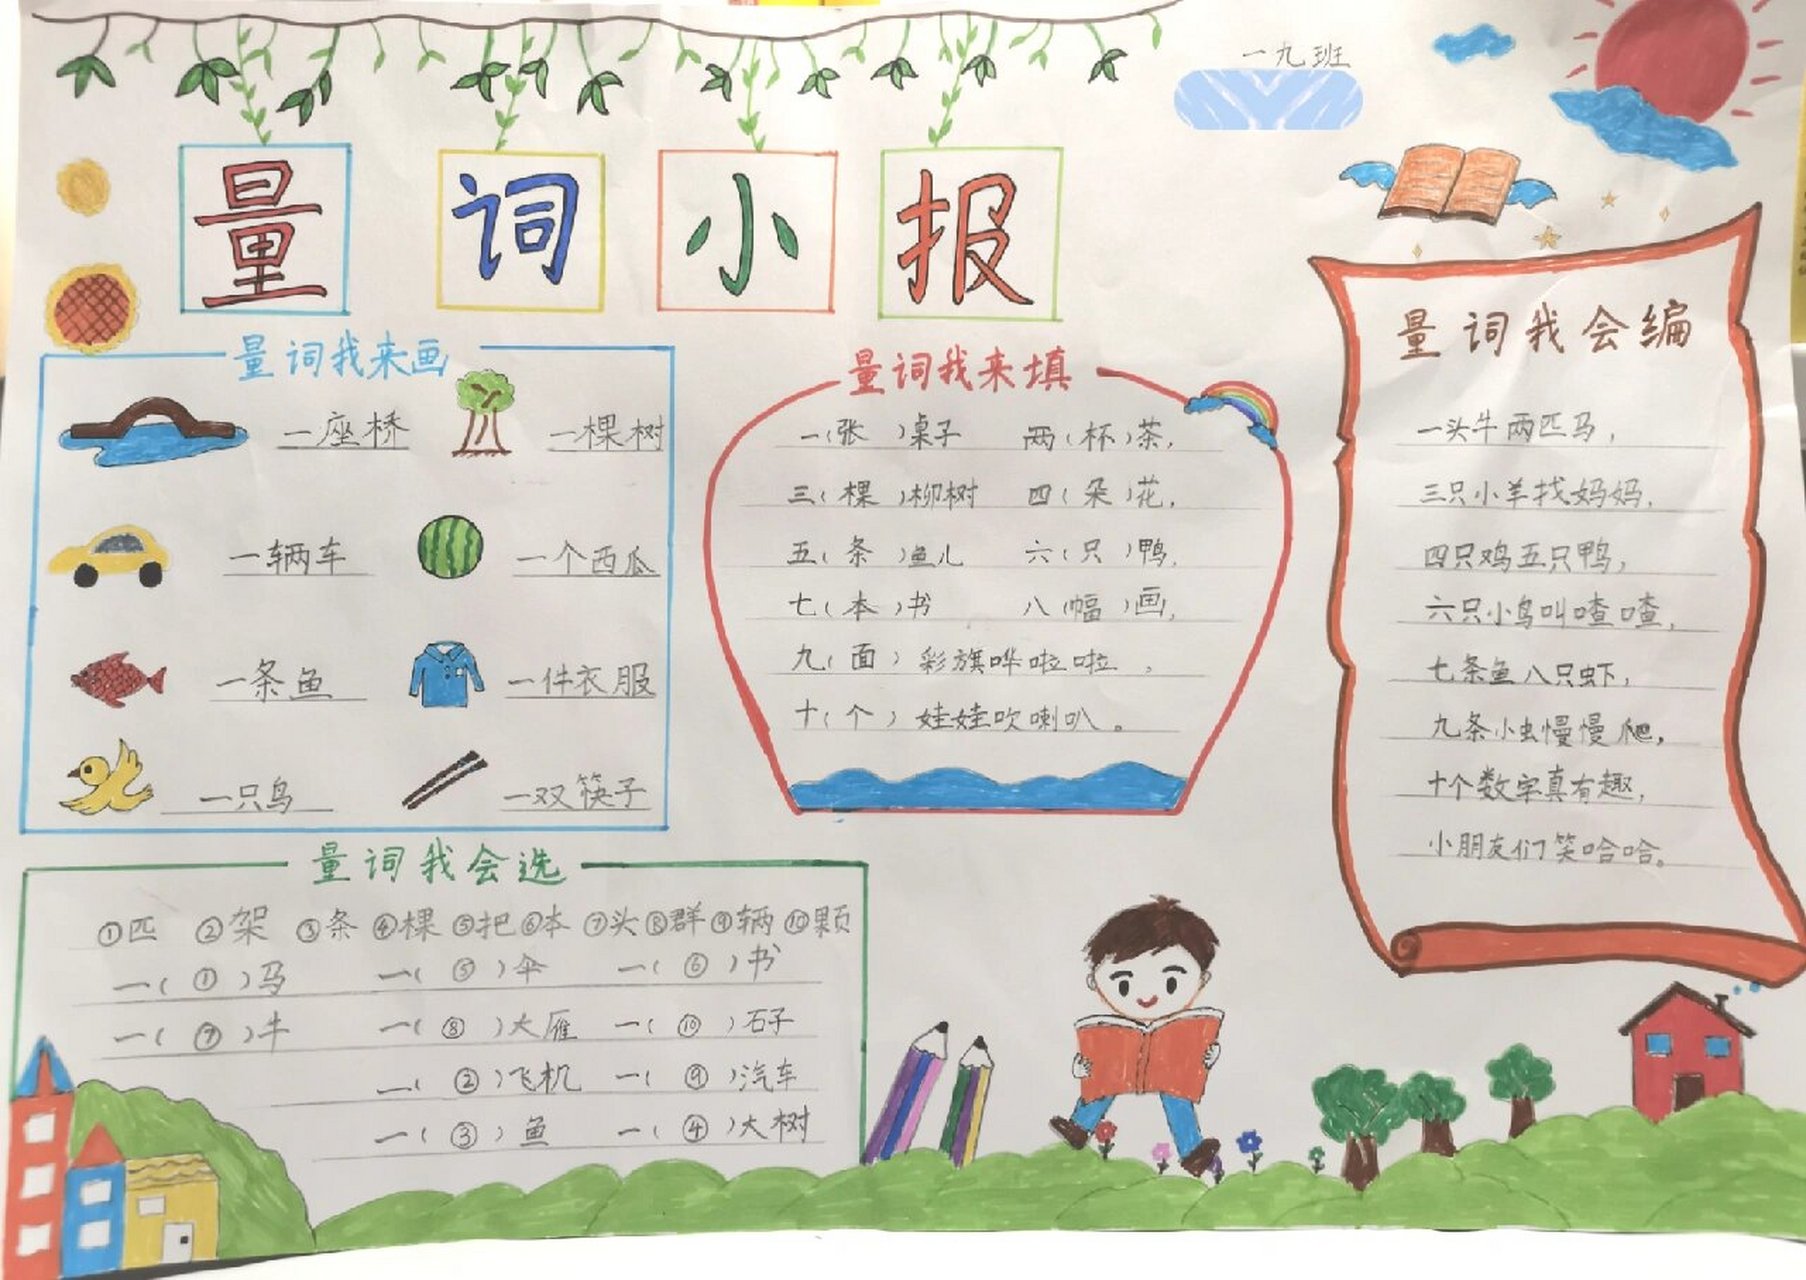 一九班
量词小报
量词我来画
一座桥 一棵树
一辆车 一个西瓜
一条鱼 一件衣服
一只鸟 一双筷子
量词我来填
一(张)桌子 两(杯)茶,
三(棵)柳树 四(朵)花,
五(条)鱼儿 六(只)鸭,
七(本)书 八(幅)画,
九(面)彩旗哗啦啦,
十(个)娃娃吹喇叭。
量词我会编
一头牛两匹马,
三只小羊找妈妈,
四只鸡五只鸭,
六只小鸟叫喳喳,
七条鱼八只虾,
九条小虫慢慢爬,
十个数字真有趣,
小朋友们笑哈哈。
量词我会选
①匹 ②架 ③条 ④棵 ⑤把 ⑥本 ⑦头 ⑧群 ⑨辆 ⑩颗
一(①)马 一(⑤)伞 一(⑥)书
一(⑦)牛 一(⑧)大雁 一(⑩)石子
一(②)飞机 一(⑨)汽车
一(③)鱼 一(④)大树